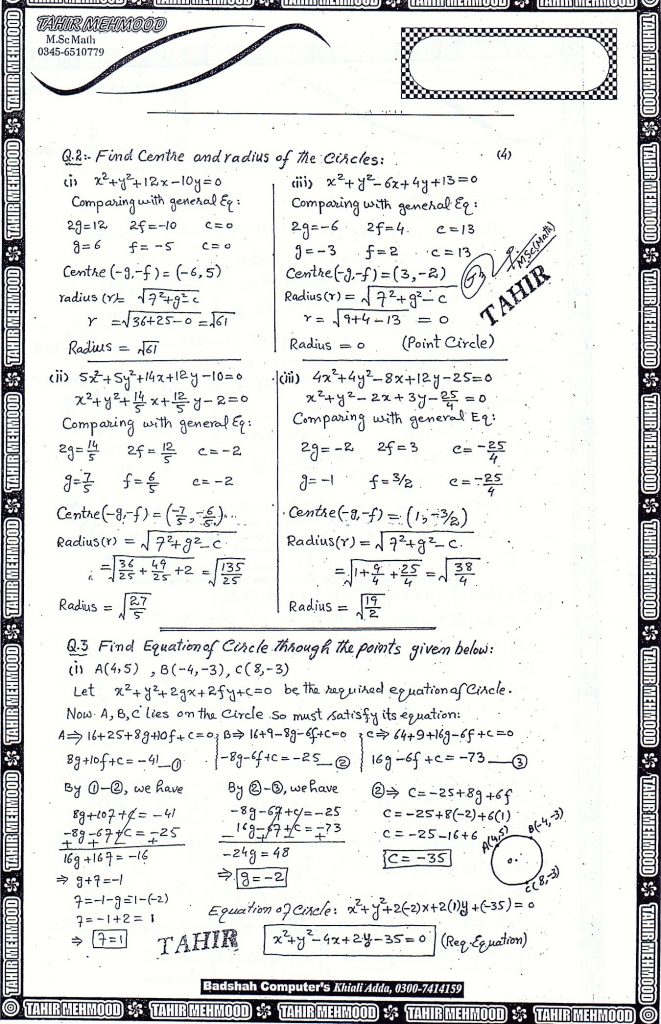 TAHIR MEHMOOD
M.Sc Math
0345-6510779
Q.2:- Find Centre and radius of the Circles:
(4)
(i) x²+y²+12x-10y=0
Comparing with general Eq:
2g=12 2f=-10 c=0
g=6 f=-5 c=0
Centre(-g,-f)=(-6,5)
radius(r)= √f²+g²-c
r =√36+25-0 =√61
Radius = √61
(iii) x²+y²-6x+4y+13=0
Comparing with general Eq:
2g=-6 2f=4 c=13
g=-3 f=2 c=13
Centre(-g,-f)=(3,-2)
Radius(r)= √f²+g²-c
r = √9+4-13 = 0
Radius = 0 (Point Circle)
M.Sc(Math)
TAHIR
(ii) 5x²+5y²+14x+12y-10=0
x²+y²+14/5 x+12/5 y-2=0
Comparing with general Eq:
2g=14/5 2f=12/5 c=-2
g=7/5 f=6/5 c=-2
Centre(-g,-f)=(-7/5,-6/5)
Radius(r)= √f²+g²-c
=√36/25+49/25+2 =√135/25
Radius = √27/5
(iii) 4x²+4y²-8x+12y-25=0
x²+y²-2x+3y-25/4=0
Comparing with general Eq:
2g=-2 2f=3 c=-25/4
g=-1 f=3/2 c=-25/4
Centre(-g,-f)=(1,-3/2)
Radius(r)= √f²+g²-c
=√1+9/4+25/4 =√38/4
Radius = √19/2
Q.3 Find Equation of Circle through the points given below:
(i) A(4,5) , B(-4,-3), C(8,-3)
Let x²+y²+2gx+2fy+c=0 be the required equation of Circle.
Now A,B,C lies on the Circle so must satisfy its equation:
A⇒16+25+8g+10f+c=0; B⇒16+9-8g-6f+c=0; C⇒64+9+16g-6f+c=0
8g+10f+c=-41 ① -8g-6f+c=-25 ② 16g-6f+c=-73 ③
By ①-②, we have
8g+10f+c=-41
-8g-6f+c=-25
+ + - +
16g+16f=-16
⇒ g+f=-1
f=-1-g=-1-(-2)
f=-1+2=1
⇒ f=1
By ②-③, we have
-8g-6f+c=-25
16g-6f+c=-73
- + - +
-24g=48
⇒ g=-2
②⇒ C=-25+8g+6f
C=-25+8(-2)+6(1)
C=-25-16+6
C=-35
A(4,5)
B(-4,-3)
C(8,-3)
Equation of Circle: x²+y²+2(-2)x+2(1)y+(-35)=0
TAHIR
x²+y²-4x+2y-35=0 (Req. Equation)
Badshah Computer's Khiali Adda, 0300-7414159
TAHIR MEHMOOD TAHIR MEHMOOD TAHIR MEHMOOD TAHIR MEHMOOD TAHIR MEHMOOD